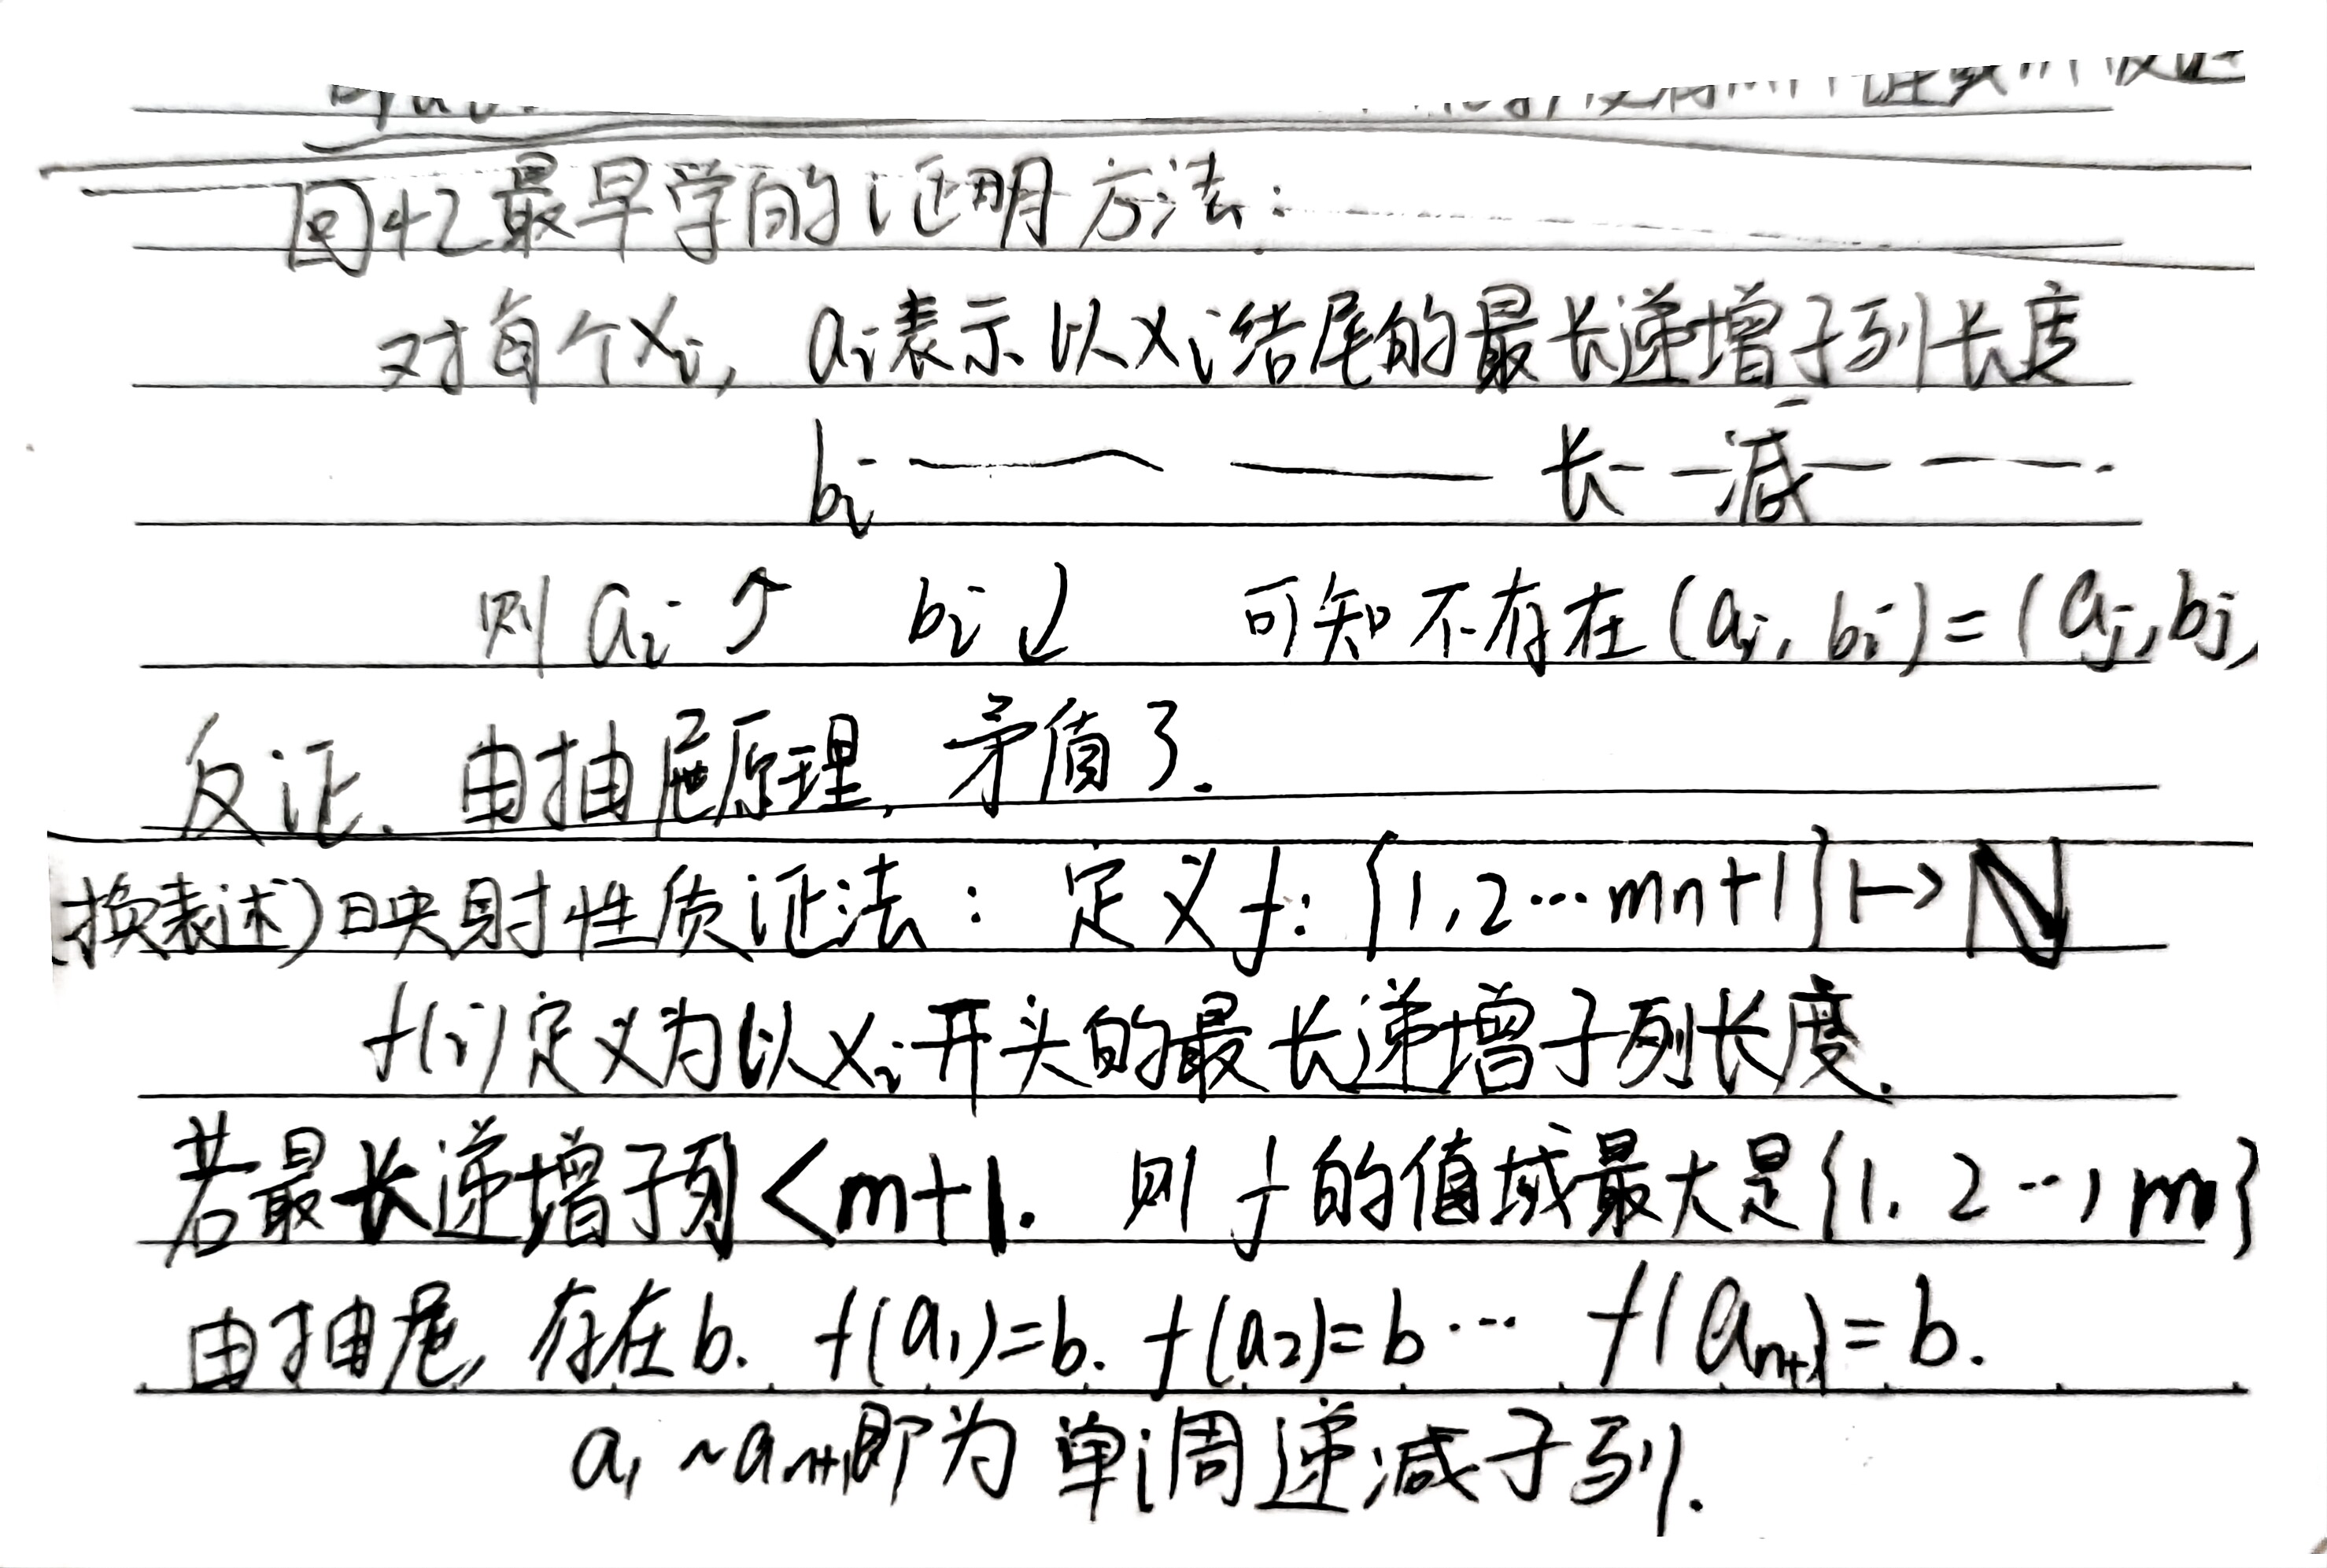 回忆最早学的证明方法:
对每个xᵢ, aᵢ表示以xᵢ结尾的最长递增子列长度
bᵢ —— —— 长 — 减 — — —.
则 aᵢ ↑ bᵢ ↓ 可知不存在 (aᵢ, bᵢ) = (aⱼ, bⱼ)
反证. 由抽屉原理, 矛盾了.
(换表述) 映射性质证法: 定义 f: {1, 2 … mn+1} ↦ ℕ
f(i) 定义为以xᵢ开头的最长递增子列长度.
若最长递增子列 < m+1. 则 f 的值域最大是 {1, 2 …, m}
由抽屉, 存在 b. f(a₁)=b. f(a₂)=b … f(aₙ₊₁)=b.
a₁ ~ aₙ₊₁ 即为单调递减子列.